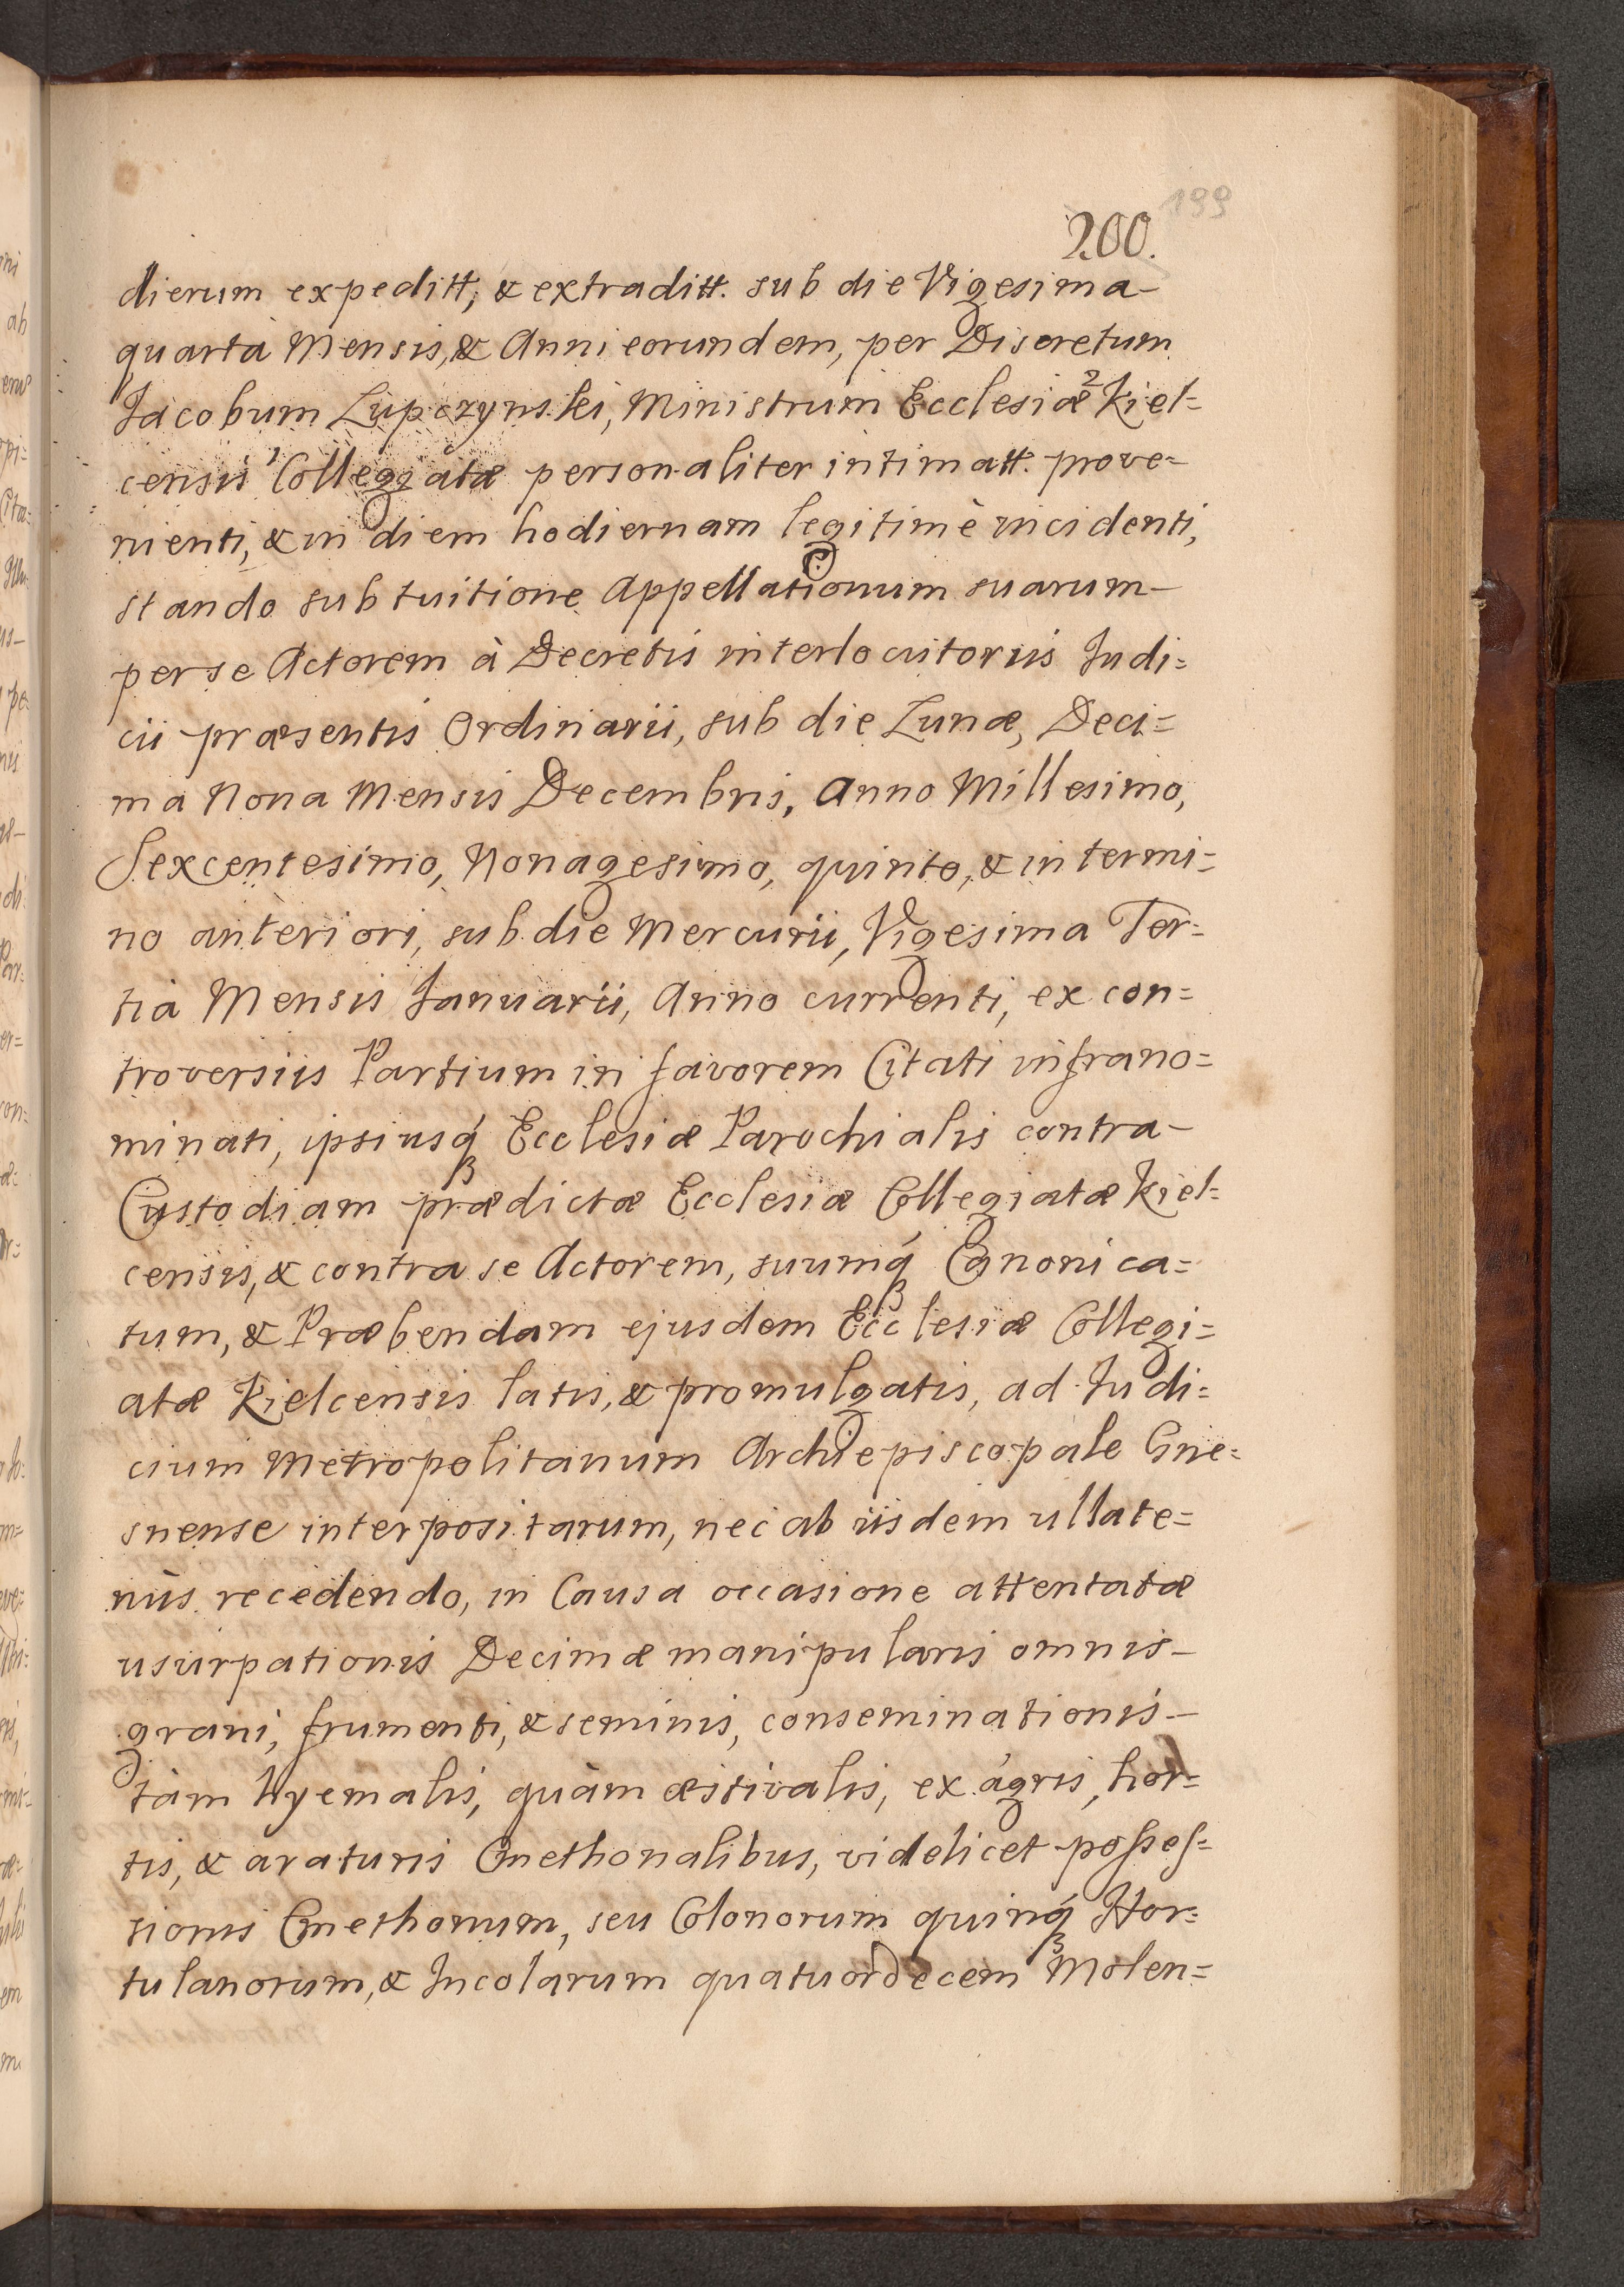 199
200.
dierum expeditt, & extraditt. sub die Vigesima-
quarta Mensis, & Anni eorundem, per Discretum
Jacobum Lupczynski, Ministrum Ecclesiæ ²Kiel=
censis ¹Collegiatæ personaliter intimatt. prove=
nienti, & in diem hodiernam legitimè incidenti,
stando sub tuitione Appellationum suarum-
per se Actorem à Decretis interlocutoriis Judi=
cii præsentis Ordinarii, sub die Lunæ, Deci=
ma Nona Mensis Decembris, Anno Millesimo,
Sexcentesimo, Nonagesimo, quinto, & in termi=
no anteriori, sub die Mercurii, Vigesima Ter=
tia Mensis Januarii, Anno currenti, ex con=
troversiis Partium in favorem Citati infrano=
minati, ipsiusq́ Ecclesiæ Parochialis contra-
Custodiam prædictæ Ecclesiæ Collegiatæ Kiel=
censis, & contra se Actorem, suumq́ Canonica=
tum, & Præbendam ejusdem Ecclesiæ Collegi=
atæ Kielcensis latis, & promulgatis, ad Judi=
cium Metropolitanum Archiepiscopale Gne=
snense interpositarum, nec ab iisdem ullate=
nùs recedendo, in Causa occasione attentatæ
usurpationis Decimæ manipularis omnis-
grani, frumenti, & seminis, conseminationis-
tàm hyemalis, quàm æstivalis, ex agris, hor=
tis, & araturis Cmethonalibus, videlicet posses=
sionis Cmethonum, seu Colonorum quinq́ Hor=
tulanorum, & Incolarum quatuordecem Molen=